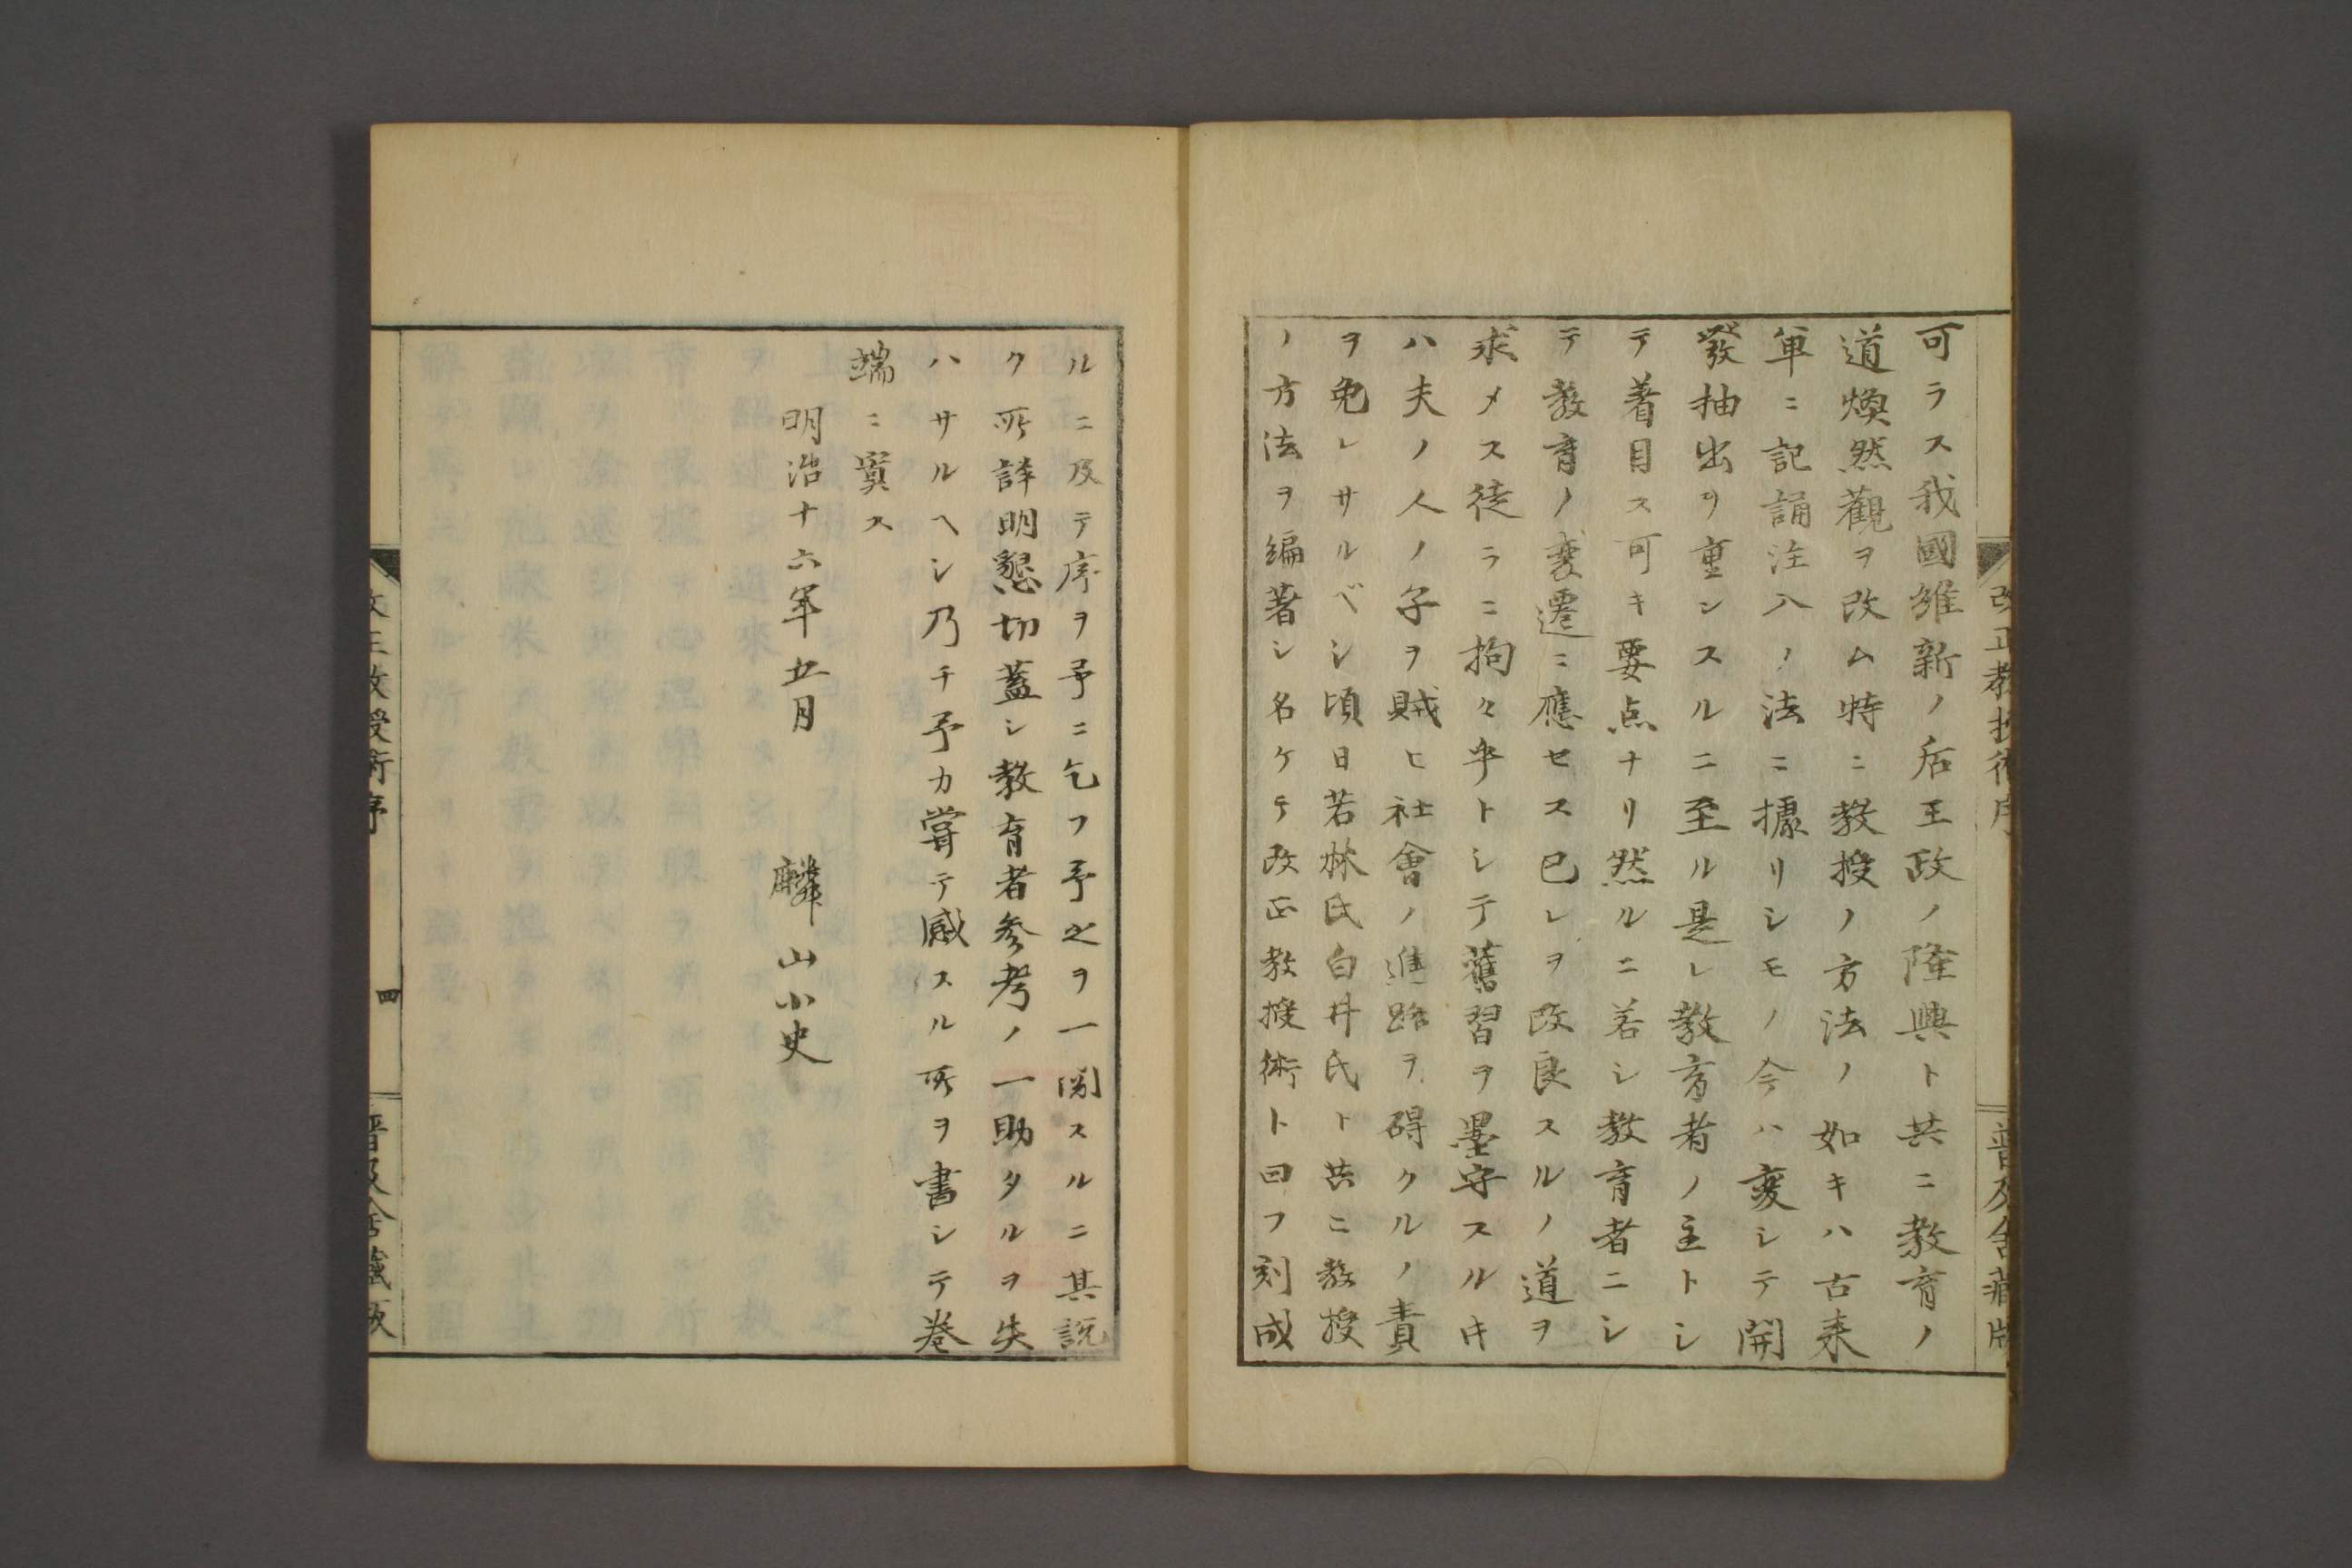 可ラス我國維新ノ后王政ノ隆興ト共ニ教育ノ
道煥然觀ヲ改ム特ニ教授ノ方法ノ如キハ古来
単ニ記誦注入ノ法ニ據リシモノ今ハ変シテ開
發抽出ヲ重ンスルニ至ル是レ教育者ノ主トシ
テ着目ス可キ要点ナリ然ルニ若シ教育者ニシ
テ教育ノ変遷ニ應セス已レヲ改良スルノ道ヲ
求メス徒ラニ拘々乎トシテ舊習ヲ墨守スルキ
ハ夫ノ人ノ子ヲ賊ヒ社會ノ進路ヲ碍クルノ責
ヲ免レサルベシ頃日若林氏白井氏ト共ニ教授
ノ方法ヲ編著シ名ケテ改正教授術ト曰フ刻成
改正教授術序
普及舎藏版
ルニ及テ序ヲ予ニ乞フ予之ヲ一閲スルニ其説
ク所詳明懇切蓋シ教育者参考ノ一助タルヲ失
ハサルヘシ乃チ予カ嘗テ感スル所ヲ書シテ巻
端ニ寘ス
明治十六年五月
麟山小史
改正教授術序
四
普及舎藏版